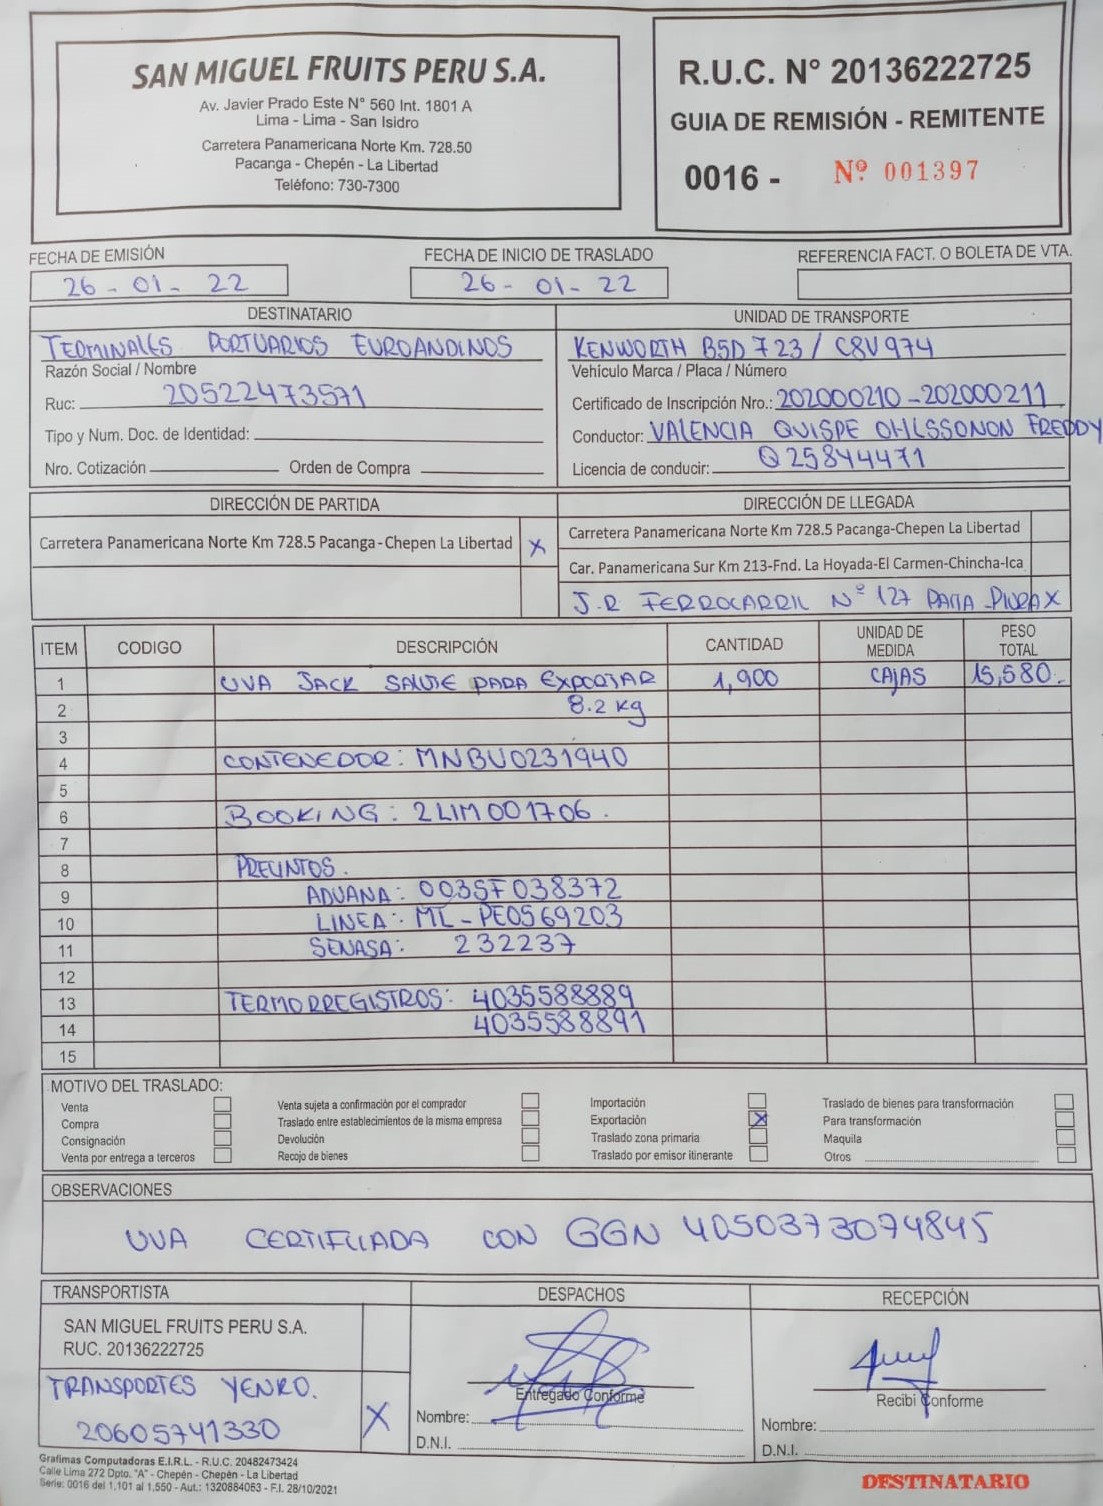 SAN MIGUEL FRUITS PERU S.A.
Av. Javier Prado Este N° 560 Int. 1801 A
Lima - Lima - San Isidro
Carretera Panamericana Norte Km. 728.50
Pacanga - Chepén - La Libertad
Teléfono: 730-7300
R.U.C. N° 20136222725
GUIA DE REMISIÓN - REMITENTE
0016 - Nº 001397
FECHA DE EMISIÓN
26 - 01 - 22
FECHA DE INICIO DE TRASLADO
26 - 01 - 22
REFERENCIA FACT. O BOLETA DE VTA.
DESTINATARIO
TERMINALES PORTUARIOS EUROANDINOS
Razón Social / Nombre
Ruc: 20522473571
Tipo y Num. Doc. de Identidad:
Nro. Cotización Orden de Compra
UNIDAD DE TRANSPORTE
KENWORTH B5D 723 / C8V974
Vehículo Marca / Placa / Número
Certificado de Inscripción Nro.: 202000210 - 202000211
Conductor: VALENCIA QUISPE OHLSSONON FREDDY
Licencia de conducir: Q25844471
DIRECCIÓN DE PARTIDA
Carretera Panamericana Norte Km 728.5 Pacanga-Chepen La Libertad X
DIRECCIÓN DE LLEGADA
Carretera Panamericana Norte Km 728.5 Pacanga-Chepen La Libertad
Car. Panamericana Sur Km 213-Fnd. La Hoyada-El Carmen-Chincha-Ica
J.R FERROCARRIL Nº 127 PAITA - PIURA X
ITEM CODIGO DESCRIPCIÓN CANTIDAD UNIDAD DE MEDIDA PESO TOTAL
1 UVA JACK SALUTE PARA EXPORTAR 1,900 CAJAS 15,580.
2 8.2 kg
3
4 CONTENEDOR: MNBU0231940
5
6 BOOKING: 2LIM001706.
7
8 PRECINTOS.
9 ADUANA: 00357038372
10 LINEA: ML - PE0569203
11 SENASA: 232237
12
13 TERMORREGISTROS: 4035588889
14 4035588891
15
MOTIVO DEL TRASLADO:
Venta
Compra
Consignación
Venta por entrega a terceros
Venta sujeta a confirmación por el comprador
Traslado entre establecimientos de la misma empresa
Devolución
Recojo de bienes
Importación
Exportación X
Traslado zona primaria
Traslado por emisor itinerante
Traslado de bienes para transformación
Para transformación
Maquila
Otros
OBSERVACIONES
UVA CERTIFICADA CON GGN 4050373074845
TRANSPORTISTA
SAN MIGUEL FRUITS PERU S.A.
RUC. 20136222725
TRANSPORTES YENRO.
20605741330 X
DESPACHOS
Entregado Conforme
Nombre:
D.N.I.
RECEPCIÓN
Recibi Conforme
Nombre:
D.N.I.
Grafimas Computadoras E.I.R.L. - R.U.C. 20482473424
Calle Lima 272 Dpto. "A" - Chepén - Chepén - La Libertad
Serie: 0016 del 1,101 al 1,550 - Aut.: 1320884063 - F.I. 28/10/2021
DESTINATARIO